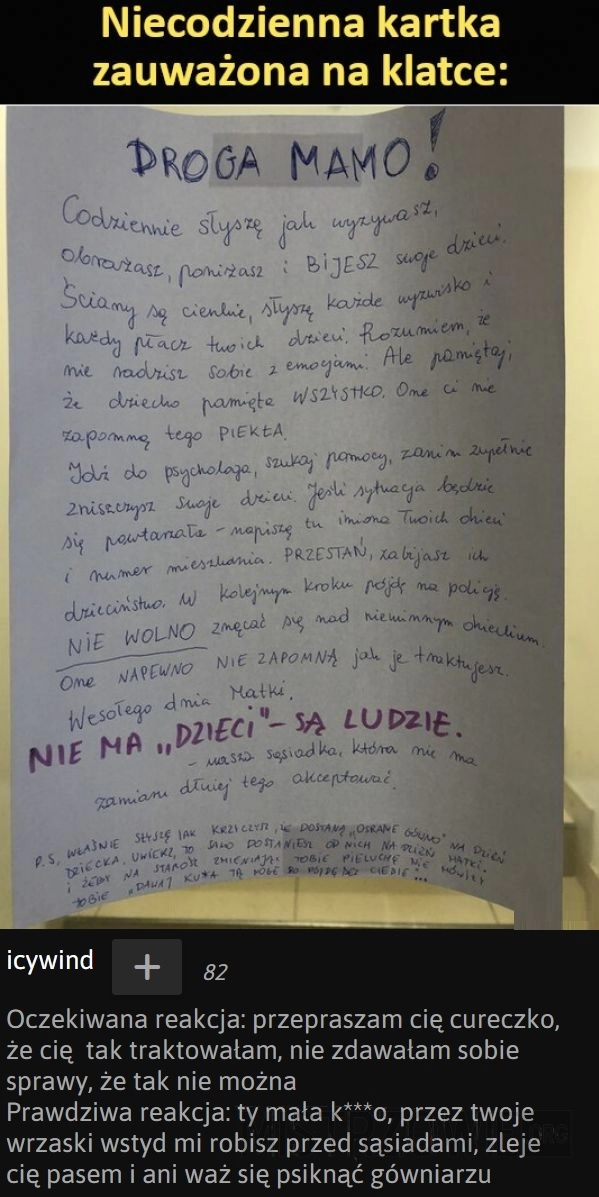 Niecodzienna kartka
zauważona na klatce:
DROGA MAMO!
Codziennie słyszę jak wyzywasz,
obrażasz, poniżasz i BIJESZ swoje dzieci.
Ściany są cienkie, słyszę każde wyzwisko i
każdy płacz twoich dzieci. Rozumiem, że
nie radzisz sobie z emocjami. Ale pamiętaj,
że dziecko pamięta WSZYSTKO. One ci nie
zapomną tego PIEKŁA.
Idź do psychologa, szukaj pomocy, zanim zupełnie
zniszczysz swoje dzieci. Jeśli sytuacja będzie
się powtarzała - napiszę tu imiona Twoich dzieci
i numer mieszkania. PRZESTAŃ, zabijasz ich
dzieciństwo. W kolejnym kroku pójdę na policję.
NIE WOLNO znęcać się nad niewinnym dzieckiem.
One NAPEWNO NIE ZAPOMNĄ jak je traktujesz.
Wesołego dnia Matki.
NIE MA „DZIECI" - SĄ LUDZIE.
- wasza sąsiadka, która nie ma
zamiaru dłużej tego akceptować.
P.S. WŁAŚNIE SŁYSZĘ JAK KRZYCZYSZ, ŻE DOSTANĄ „OSRANE GÓWNO" NA DZIEŃ
DZIECKA. UWIERZ, TO SAMO DOSTANIESZ OD NICH NA DZIEŃ MATKI.
I ŻEBY NA STAROŚĆ ZMIENIAJĄC TOBIE PIELUCHĘ NIE MÓWILI
TOBIE „DAWAJ KU*A TĄ NOGE BO PÓJDĘ BEZ CIEBIE"...
icywind + 82
Oczekiwana reakcja: przepraszam cię cureczko,
że cię tak traktowałam, nie zdawałam sobie
sprawy, że tak nie można
Prawdziwa reakcja: ty mała k***o, przez twoje
wrzaski wstyd mi robisz przed sąsiadami, zleje
cię pasem i ani waż się psiknąć gówniarzu